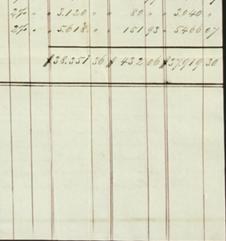 2% " " 3.120 " 80 " 3.040 "
2% " " 5.618 " 151 93 " 5466 07
$38.351 36 $ 432 06 $37919 30